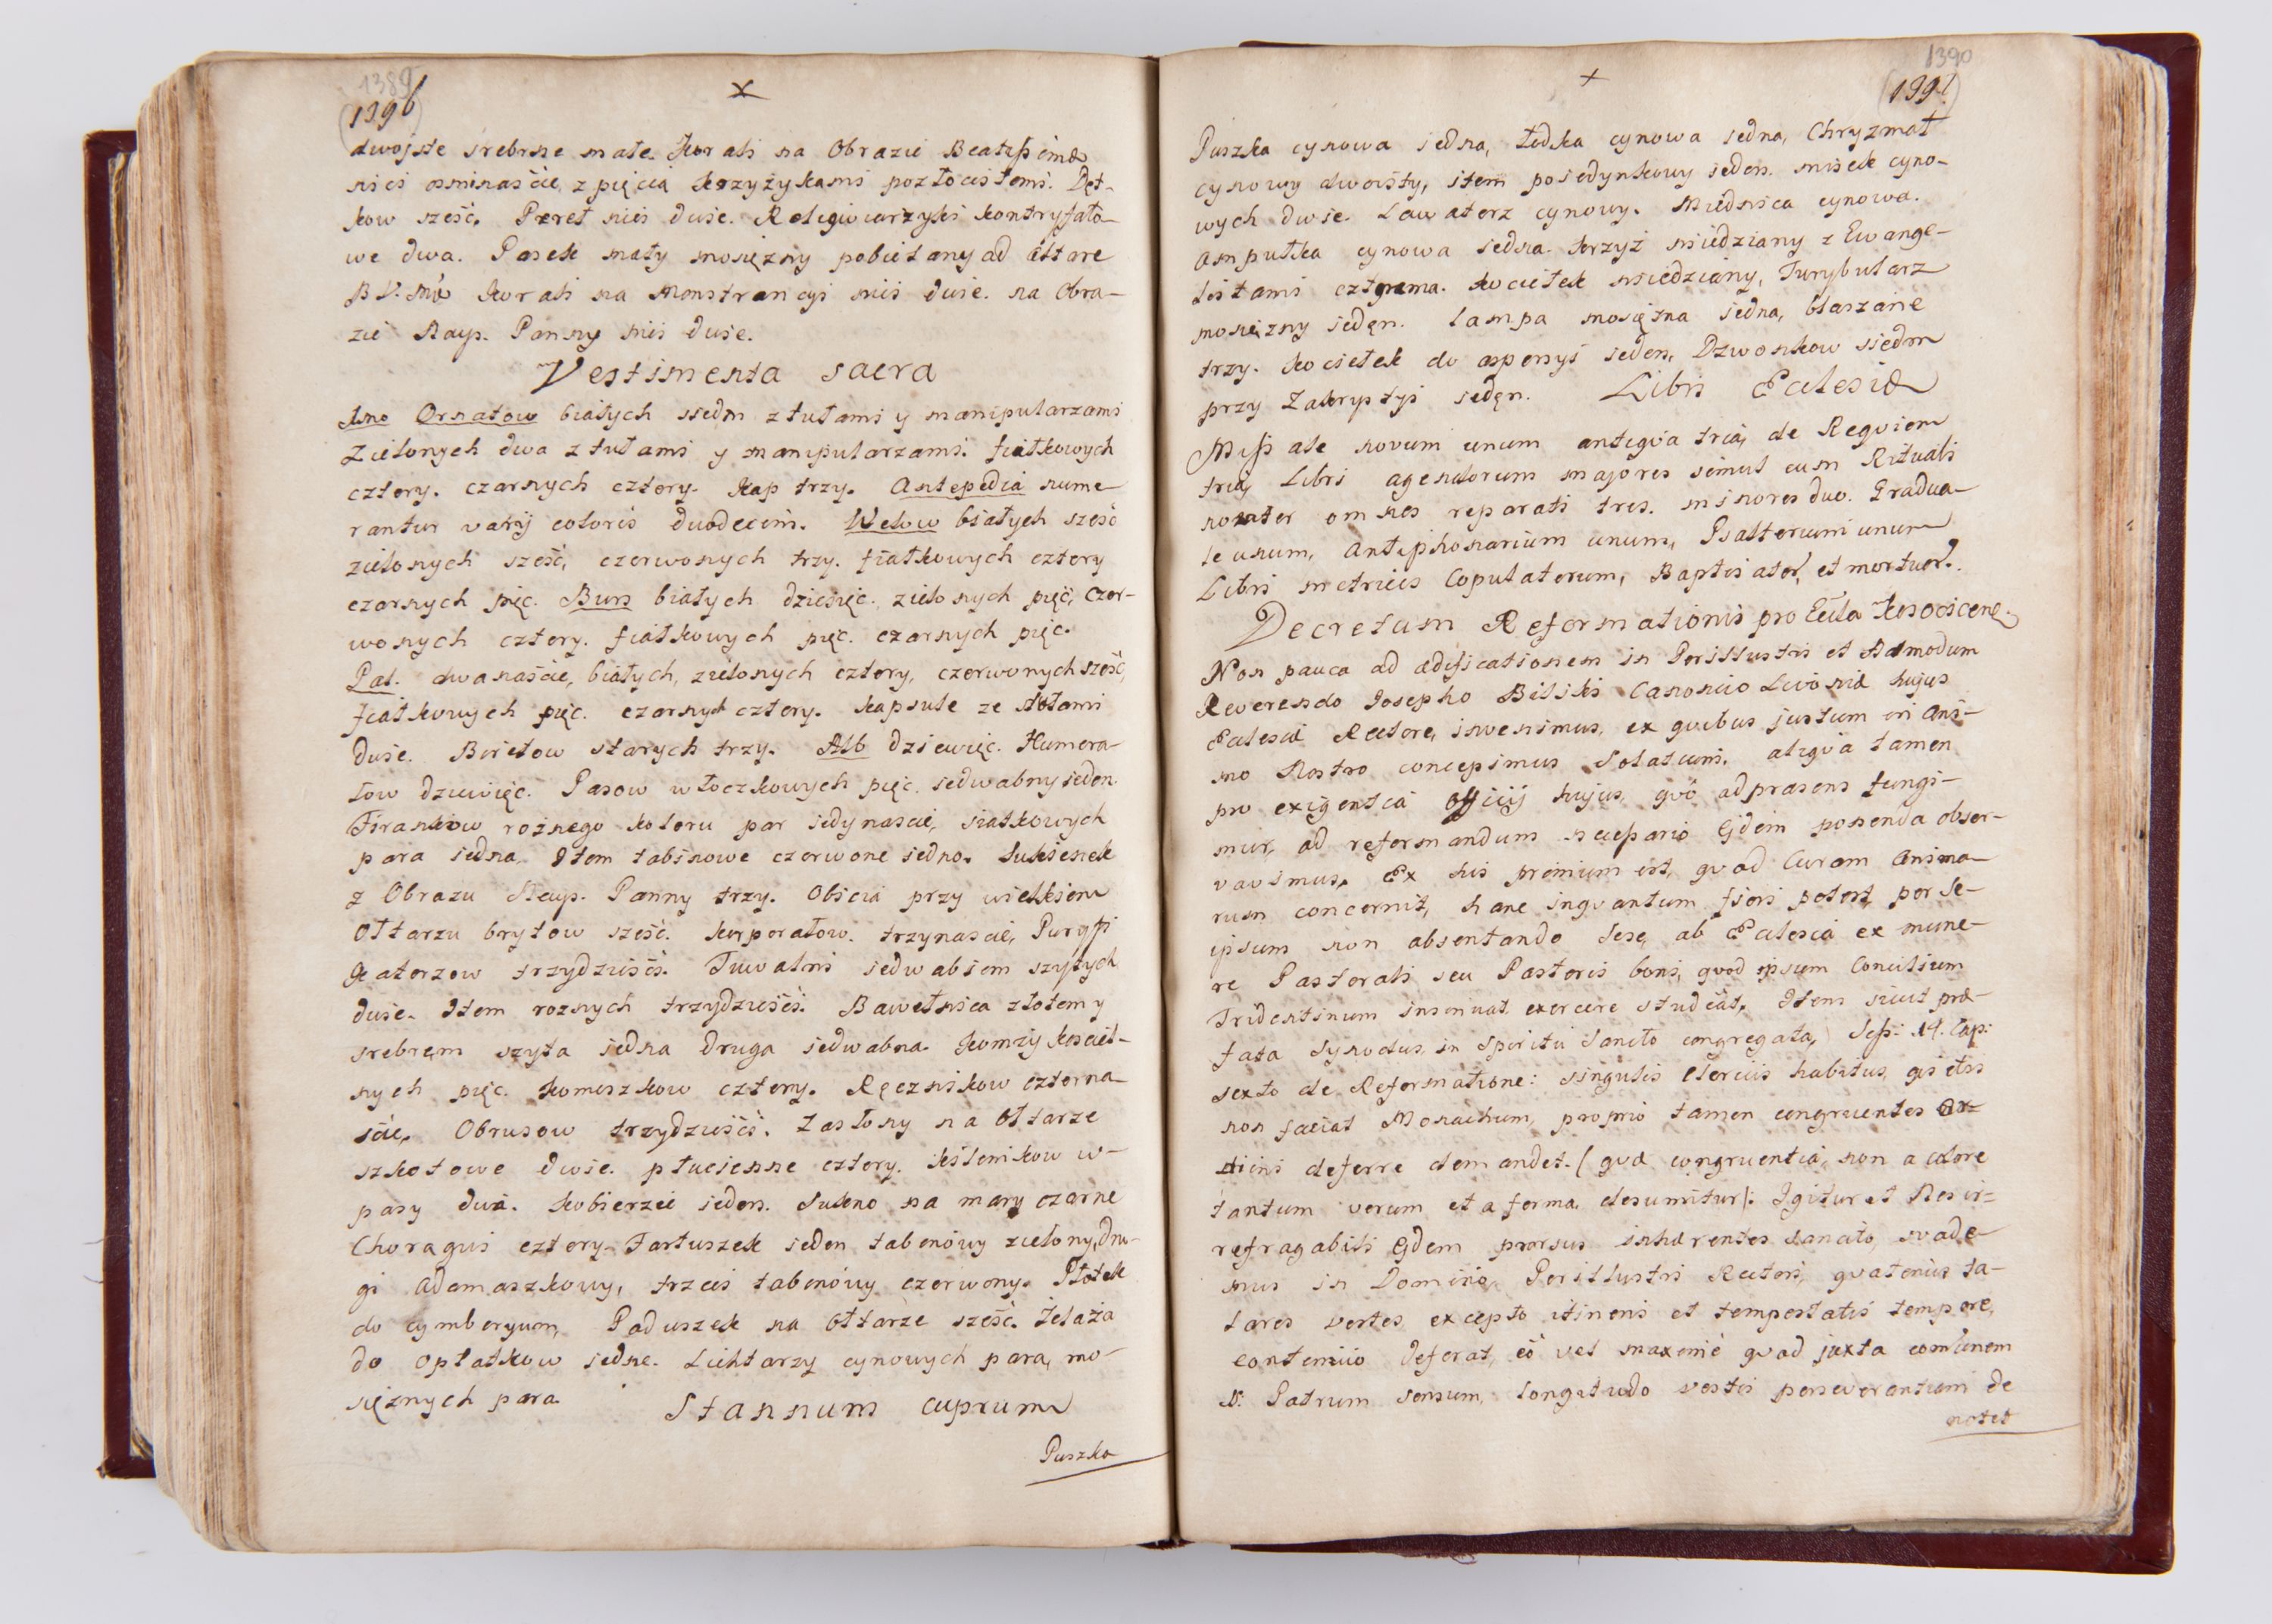 1389
(1396)
x
dwojste srebrne małe. Korali na Obrazie Beatissimæ
nici osminaście, z pięcią krzyżykami pozłocistemi. Dęt-
kow sześć. Pereł nici dwie. Religwiarzyki kontryfało-
we dwa. Pasek mały mosiężny pobielany ad altare
B V. Mæ Korali na Monstrancyi nici dwie. na Obra-
zie Nays. Panny nici dwie.
Vestimenta sacra
Imo Ornatow białych siedm z stułami y manipularzami
Zielonych dwa z stułami y manipularzami. fiałkowych
cztery. czarnych cztery. Kap trzy. Antepedia nume
rantur varij coloris duodecim. Welow białych sześć
zielonych sześć, czerwonych trzy. fiałkowych cztery
czarnych pięc. Burs białych dziesięc. zielonych pięć, czer-
wonych cztery. fiałkowych pięc. czarnych pięc.
Pal. dwanaście, białych, zielonych cztery, czerwonych sześć,
fiałkowych pięc. czarnych cztery. Kapsule ze stołami
dwie. Biretow starych trzy. Alb dziewięc. Humera-
łow dziewięc. Pasow włoczkowych pięc. jedwabny jeden.
Firankow rożnego koloru par jedynaście, siatkowych
para jedna, Item tabinowe czerwone jedno. Sukienek
z Obrazu Nays. Panny trzy. Obicia przy wielkiem
Ołtarzu brytow sześć. Korporałow. trzynaście, Puryfi
katerzow trzydzieści. Tuwalni jedwabiem szytych
dwie. Item roznych trzydzieści. Bawełnica złotem y
srebrem szyta jedna druga jedwabna. Komży kosciel-
nych pięc. Komeszkow cztery. Ręcznikow czterna-
ście, Obrusow trzydzieści. Zasłony na Ołtarze
szkotowe dwie. płucienne cztery. Kilemikow w-
pasy dwa. Kobierzec jeden. Sukno na mary czarne
Choragwi cztery. Fartuszek jeden tabinowy zielony, dru-
gi adamaszkowy, trzeci tabinowy czerwony. Płotek
do cymboryum, Paduszek na Ołtarze sześć. Żelaża
do opłatkow jedne. Lichtarzy cynowych para, mo-
siężnych para.
Stannum cuprum
Puszka
1390
(1391)
x
Puszka cynowa jedna, Łodka cynowa jedna, Chryzmał
cynowy dwoisty, item pojedynkowy jeden. misek cyno-
wych dwie. Lawaterz cynowy. Miednica cynowa.
Ampułka cynowa jedna. Krzyż miedziany z Ewange-
listami cztyrema. Kociełek miedziany, Turybularz
mosiezny jeden. Lampa mosiężna jedna, blaszane
trzy. Kociełek do aspersyi jeden, Dzwonkow siedm
przy Zakrystyi jeden. Libri Ecclesiæ
Missale novum unum antiqua tria, de Requiem
tria, Libri agendorum majores simul cum Rituali
noviter omnes reparati tres. minores duo. Gradua-
le unum, Antiphonarium unum, Psalterium unum
Libri metrices Copulatorum, Baptisator, et mortuor.
Decretum Reformationis pro Eccla Kosocicene.
Non pauca ad ædificationem in Perillustri et Admodum
Reverendo Josepho Bilski Canonico Livoniæ hujus
Ecclesiæ Rectore, invenimus, ex quibus justum in Ani-
mo Nostro concepimus Solatium. aliqua tamen
pro exigentia officij hujus, quo ad præsens fungi-
mur, ad reformandum necessario Ejdem ponenda obser-
vavimus. Ex his primum est, quod Curam Anima-
rum concernit, hanc inquantum fieri potest, per se-
ipsum non absentando sese, ab Ecclesia ex mune-
re Pastorali seu Pastoris boni, quod ipsum Concilium
Tridentinum insinuat exercere studeat. Item sicut præ-
fata Synodus in Spiritu Sancto congregata, Sess: 14. Cap:
sexto de Reformatione: singulis Clericis habitus, qui etsi
non faciat Monachum, proprio tamen congruentes Or-
dini deferre demandet. (quæ congruentia, non a colore
tantum verum et a forma, desumitur): Igitur et Nos ir-
refragabili Ejdem prorsus inhærentes sancito, svade-
mus in Domino, Perillustri Rectori, quatenus ta-
lares vestes, excepto itineris et tempestatis tempore,
continuo deferat, eo vel maxime quod juxta comunem
S: Patrum sensum, longitudo vestis perseverantiam de
notet